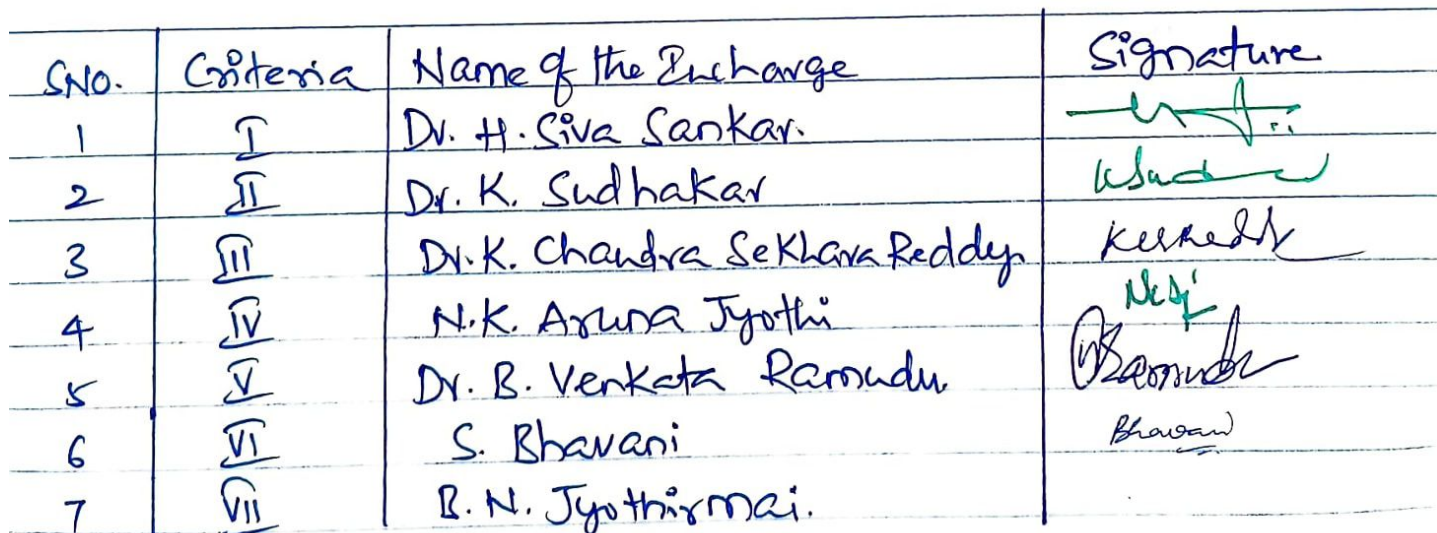 SNO. Criteria Name of the Incharge Signature
1 I Dr. H. Siva Sankar.
2 II Dr. K. Sudhakar
3 III Dr. K. Chandra Sekhara Reddy
4 IV N.K. Aruna Jyothi
5 V Dr. B. Venkata Ramudu Ramudu
6 VI S. Bhavani Bhavani
7 VII B. N. Jyothirmai.